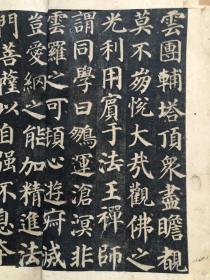 雲團輔塔頂衆盡瞻覩
莫不崩悅大哉觀佛之
光利用賓于法王禪師
謂同學曰鵬運滄溟非
雲羅之可頓心遊寂滅
豈愛網之能加精進法
門菩薩以自强不息本